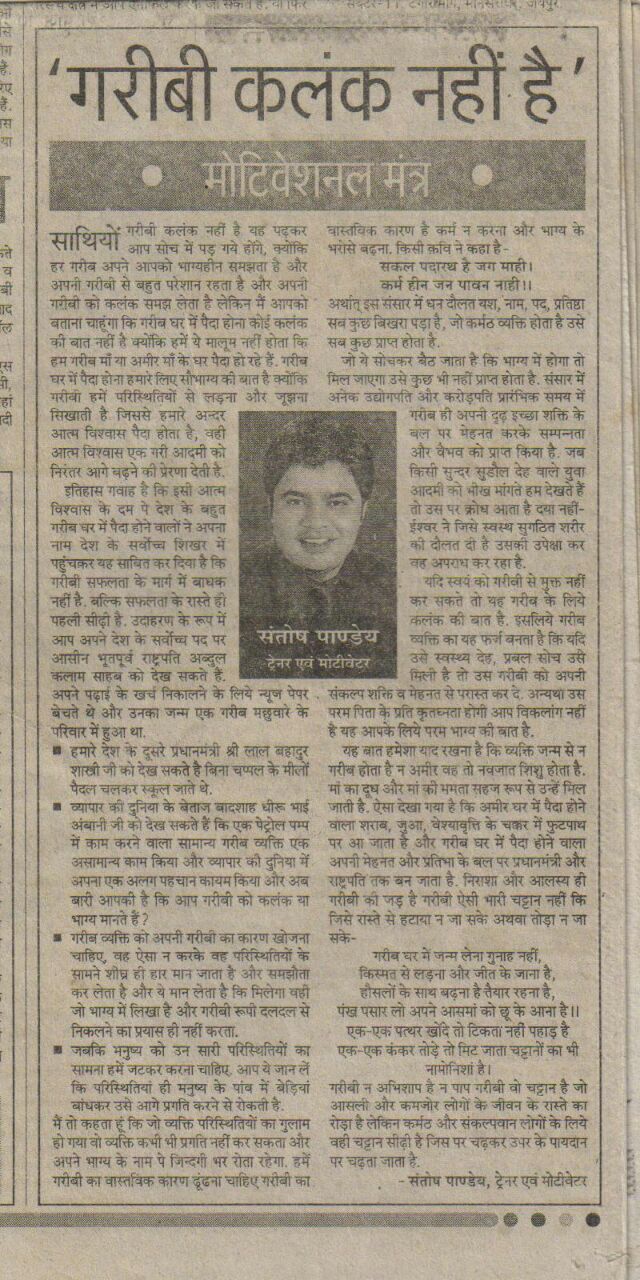 सेक्टर-11, टैगोर मार्ग, मानसरोवर, जयपुर.
'गरीबी कलंक नहीं है'
• मोटिवेशनल मंत्र •
साथियों गरीबी कलंक नहीं है यह पढ़कर
आप सोच में पड़ गये होंगे, क्योंकि
हर गरीब अपने आपको भाग्यहीन समझता है और
अपनी गरीबी से बहुत परेशान रहता है और अपनी
गरीबी को कलंक समझ लेता है लेकिन मैं आपको
बताना चाहूंगा कि गरीब घर में पैदा होना कोई कलंक
की बात नहीं है क्योंकि हमें ये मालूम नहीं होता कि
हम गरीब माँ या अमीर माँ के घर पैदा हो रहे हैं. गरीब
घर में पैदा होना हमारे लिए सौभाग्य की बात है क्योंकि
गरीबी हमें परिस्थितियों से लड़ना और जूझना
सिखाती है. जिससे हमारे अन्दर
आत्म विश्वास पैदा होता है, वही
आत्म विश्वास एक गरी आदमी को
निरंतर आगे बढ़ने की प्रेरणा देती है.
इतिहास गवाह है कि इसी आत्म
विश्वास के दम पे देश के बहुत
गरीब घर में पैदा होने वालों ने अपना
नाम देश के सर्वोच्च शिखर में
पहुंचकर यह साबित कर दिया है कि
गरीबी सफलता के मार्ग में बाधक
नहीं है. बल्कि सफलता के रास्ते ही
पहली सीढ़ी है. उदाहरण के रूप में
आप अपने देश के सर्वोच्च पद पर
आसीन भूतपूर्व राष्ट्रपति अब्दुल
कलाम साहब को देख सकते हैं.
अपने पढ़ाई के खर्च निकालने के लिये न्यूज पेपर
बेचते थे और उनका जन्म एक गरीब मछुवारे के
परिवार में हुआ था.
■ हमारे देश के दूसरे प्रधानमंत्री श्री लाल बहादुर
शास्त्री जी को देख सकते है बिना चप्पल के मीलों
पैदल चलकर स्कूल जाते थे.
■ व्यापार की दुनिया के बेताज बादशाह धीरू भाई
अंबानी जी को देख सकते हैं कि एक पेट्रोल पम्प
में काम करने वाला सामान्य गरीब व्यक्ति एक
असामान्य काम किया और व्यापार की दुनिया में
अपना एक अलग पहचान कायम किया और अब
बारी आपकी है कि आप गरीबी को कलंक या
भाग्य मानते हैं ?
■ गरीब व्यक्ति को अपनी गरीबी का कारण खोजना
चाहिए, वह ऐसा न करके वह परिस्थितियों के
सामने शीघ्र ही हार मान जाता है और समझौता
कर लेता है और ये मान लेता है कि मिलेगा वही
जो भाग्य में लिखा है और गरीबी रूपी दलदल से
निकलने का प्रयास ही नहीं करता.
■ जबकि मनुष्य को उन सारी परिस्थितियों का
सामना हमें जटकर करना चाहिए. आप ये जान लें
कि परिस्थितियां ही मनुष्य के पांव में बेड़ियां
बांधकर उसे आगे प्रगति करने से रोकती है.
मैं तो कहता हूं कि जो व्यक्ति परिस्थितियों का गुलाम
हो गया वो व्यक्ति कभी भी प्रगति नहीं कर सकता और
अपने भाग्य के नाम पे जिन्दगी भर रोता रहेगा. हमें
गरीबी का वास्तविक कारण ढूंढना चाहिए गरीबी का
वास्तविक कारण है कर्म न करना और भाग्य के
भरोसे बढ़ना. किसी कवि ने कहा है-
सकल पदारथ है जग माही।
कर्म हीन जन पावन नाही!।
अर्थात् इस संसार में धन दौलत यश, नाम, पद, प्रतिष्ठा
सब कुछ बिखरा पड़ा है, जो कर्मठ व्यक्ति होता है उसे
सब कुछ प्राप्त होता है.
जो ये सोचकर बैठ जाता है कि भाग्य में होगा तो
मिल जाएगा उसे कुछ भी नहीं प्राप्त होता है. संसार में
अनेक उद्योगपति और करोड़पति प्रारंभिक समय में
गरीब ही अपनी दृढ़ इच्छा शक्ति के
बल पर मेहनत करके सम्पन्नता
और वैभव को प्राप्त किया है. जब
किसी सुन्दर सुडौल देह वाले युवा
आदमी को भीख मांगते हम देखते हैं
तो उस पर क्रोध आता है दया नहीं-
ईश्वर ने जिसे स्वस्थ सुगठित शरीर
की दौलत दी है उसकी उपेक्षा कर
वह अपराध कर रहा है.
यदि स्वयं को गरीबी से मुक्त नहीं
कर सकते तो यह गरीब के लिये
कलंक की बात है. इसलिये गरीब
व्यक्ति का यह फर्ज बनता है कि यदि
उसे स्वस्थ्य देह, प्रबल सोच उसे
मिली है तो उस गरीबी को अपनी
संकल्प शक्ति व मेहनत से परास्त कर दे. अन्यथा उस
परम पिता के प्रति कृतघ्नता होगी आप विकलांग नहीं
है यह आपके लिये परम भाग्य की बात है.
यह बात हमेशा याद रखना है कि व्यक्ति जन्म से न
गरीब होता है न अमीर वह तो नवजात शिशु होता है.
मां का दूध और मां की ममता सहज रूप से उन्हें मिल
जाती है. ऐसा देखा गया है कि अमीर घर में पैदा होने
वाला शराब, जुआ, वेश्यावृत्ति के चक्कर में फुटपाथ
पर आ जाता है और गरीब घर में पैदा होने वाला
अपनी मेहनत और प्रतिभा के बल पर प्रधानमंत्री और
राष्ट्रपति तक बन जाता है. निराशा और आलस्य ही
गरीबी की जड़ है गरीबी ऐसी भारी चट्टान नहीं कि
जिसे रास्ते से हटाया न जा सके अथवा तोड़ा न जा
सके-
गरीब घर में जन्म लेना गुनाह नहीं,
किस्मत से लड़ना और जीत के जाना है,
हौसलों के साथ बढ़ना है तैयार रहना है,
पंख पसार लो अपने आसमां को छू के आना है।।
एक-एक पत्थर खोंदे तो टिकता नहीं पहाड़ है
एक-एक कंकर तोड़े तो मिट जाता चट्टानों का भी
नामोनिशां है।
गरीबी न अभिशाप है न पाप गरीबी वो चट्टान है जो
आसली और कमजोर लोगों के जीवन के रास्ते का
रोड़ा है लेकिन कर्मठ और संकल्पवान लोगों के लिये
वही चट्टान सीढ़ी है जिस पर चढ़कर उपर के पायदान
पर चढ़ता जाता है.
- संतोष पाण्डेय, ट्रेनर एवं मोटीवेटर
संतोष पाण्डेय
ट्रेनर एवं मोटीवेटर